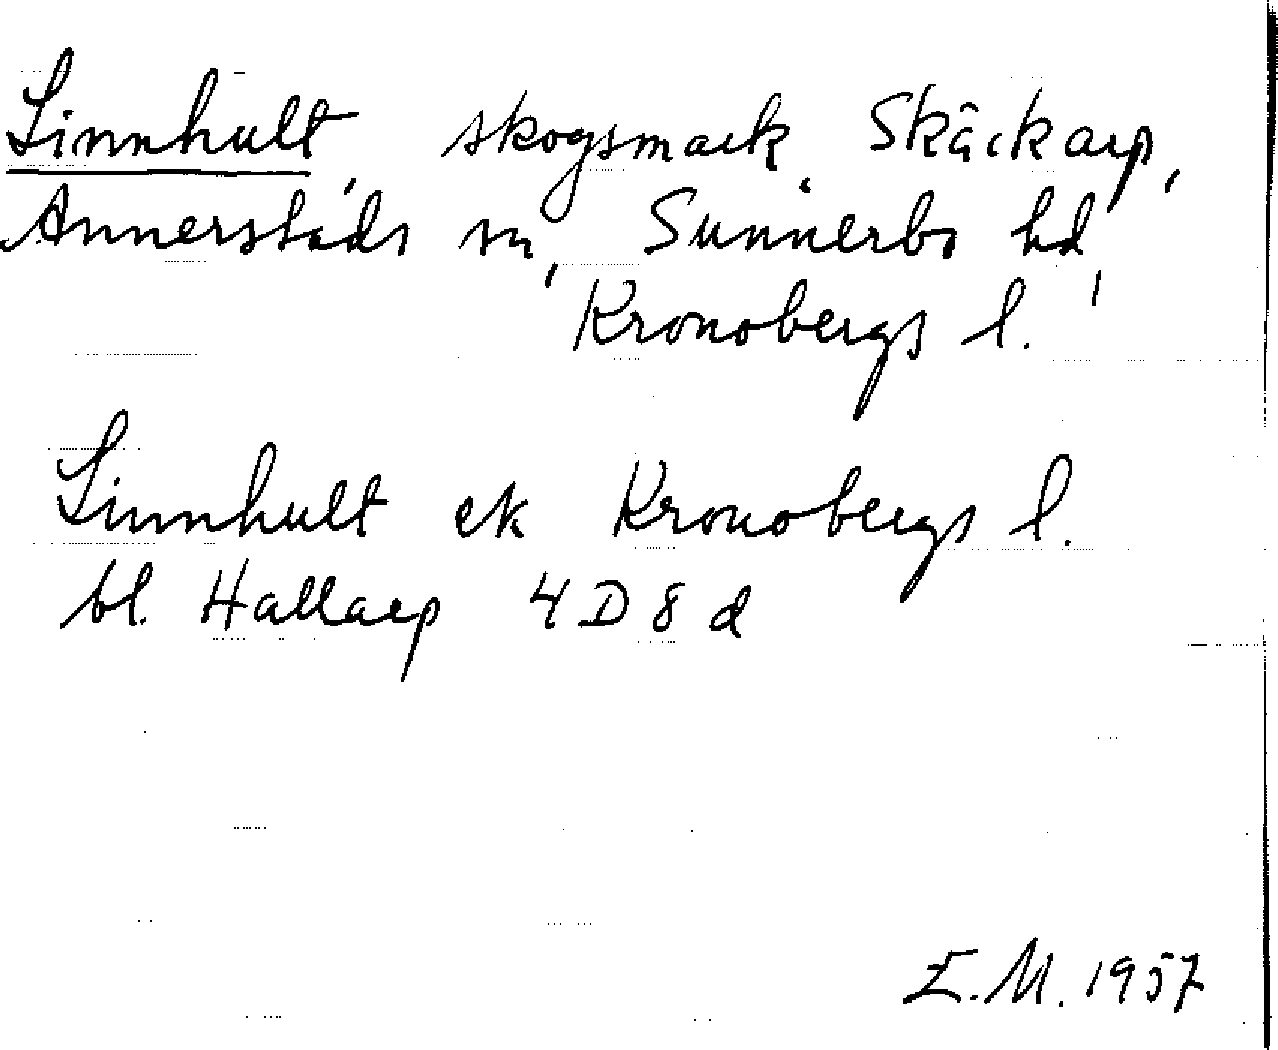 Linnhult, skogsmark, Skäckarp,
Annerstads sn, Sunnerbo hd,
Kronobergs l.
Linnhult ek Kronobergs l.
bl. Hallarp 4 D 8 d
E.M. 1957